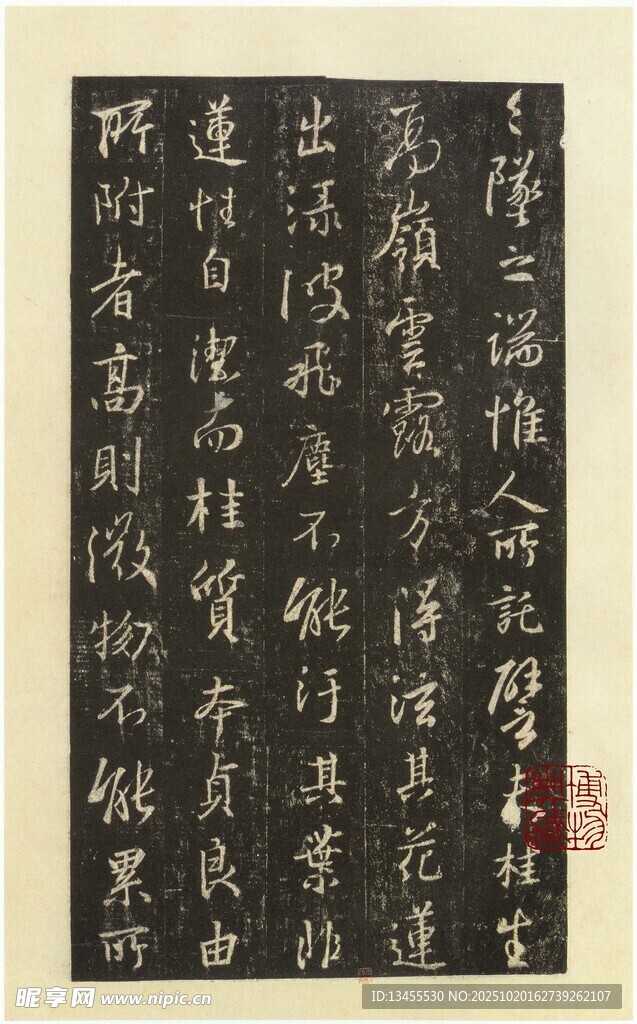 々墜之端惟人所託譬夫桂生
高嶺雲露方得泫其花蓮
出淥波飛塵不能汙其葉非
蓮性自潔而桂質本貞良由
所附者高則微物不能累所
昵享网 www.nipic.cn
ID:13455530 NO:20251020162739262107